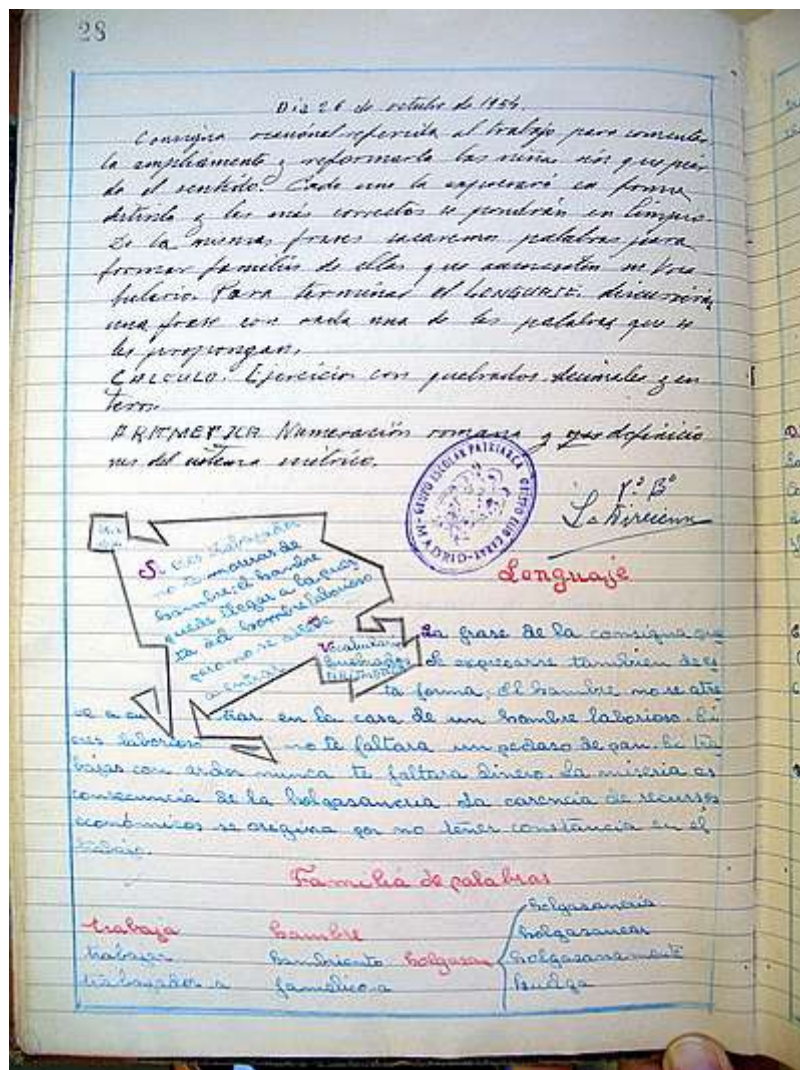 28
Dia 26 de octubre de 1954.
Consigna ocasional referida al trabajo para comentar
la ampliamente y reformarla las niñas sin que pier
da el sentido. Cada una la expresará en forma
distinta y las más correctas se pondrán en limpio.
De la mismas frases sacaremos palabras para
formar familias de ellas y que aumenten su voca
bulario. Para terminar el LENGUAJE. discurrirán
una frase con cada una de las palabras que se
les propongan.
CALCULO. Ejercicios con quebrados decimales y en
teros
ARITMETICA Numeración romana y definicio
nes del sistema métrico.
GRUPO ESCOLAR PATRIARCA
Vº Bº
La Directora
Lenguaje
Si eres trabajador
no te moriras de
hambre; el hambre
puede llegar a la puer
ta del hombre laborioso
pero no se atreve
a entrar.
Vocabulario
Quebrados
La frase de la consigna que
de expresarse tambien de es
ta forma; el hambre no se atre
ve a en trar en la casa de un hombre laborioso. Si
eres laborioso no te faltara un pedaso de pan. Si tra
bajas con ardor nunca te faltara dinero. La miseria es
consecuencia de la holgasaneria. La carencia de recursos
económicos se oregina por no tener constancia en el
trabajo.
Familia de palabras
trabaja hambre holgasaneria
trabajar hambriento holgasan holgasanear
trabajador a famelico a holgasanamente
huelga